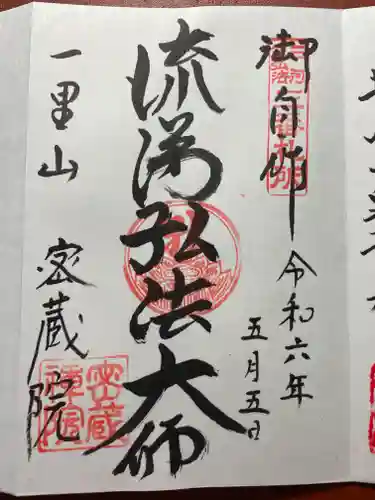 御自作
令和六年
五月五日
流涕弘法大師
一里山 密蔵院
密蔵
禅院